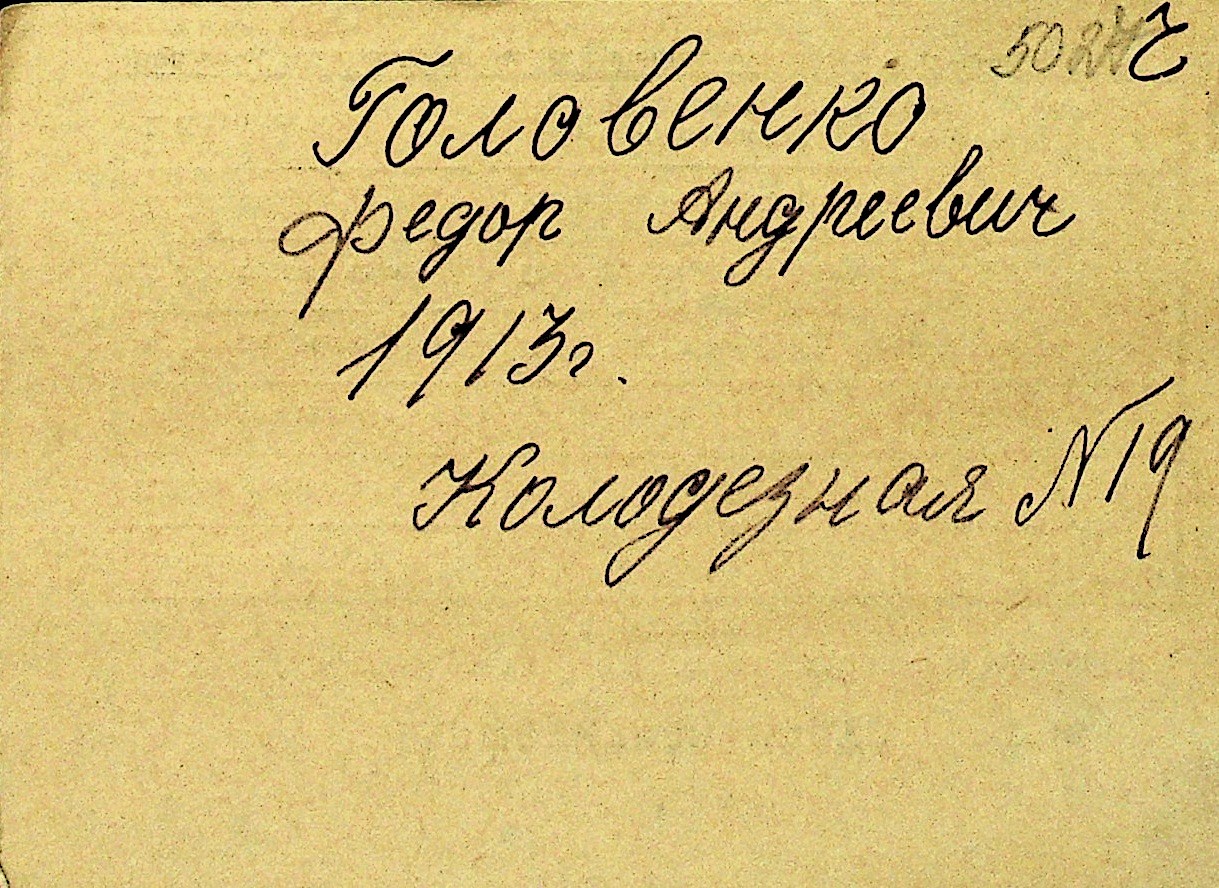 Головенко
Федор Андреевич
1913г.
Колодезная №19